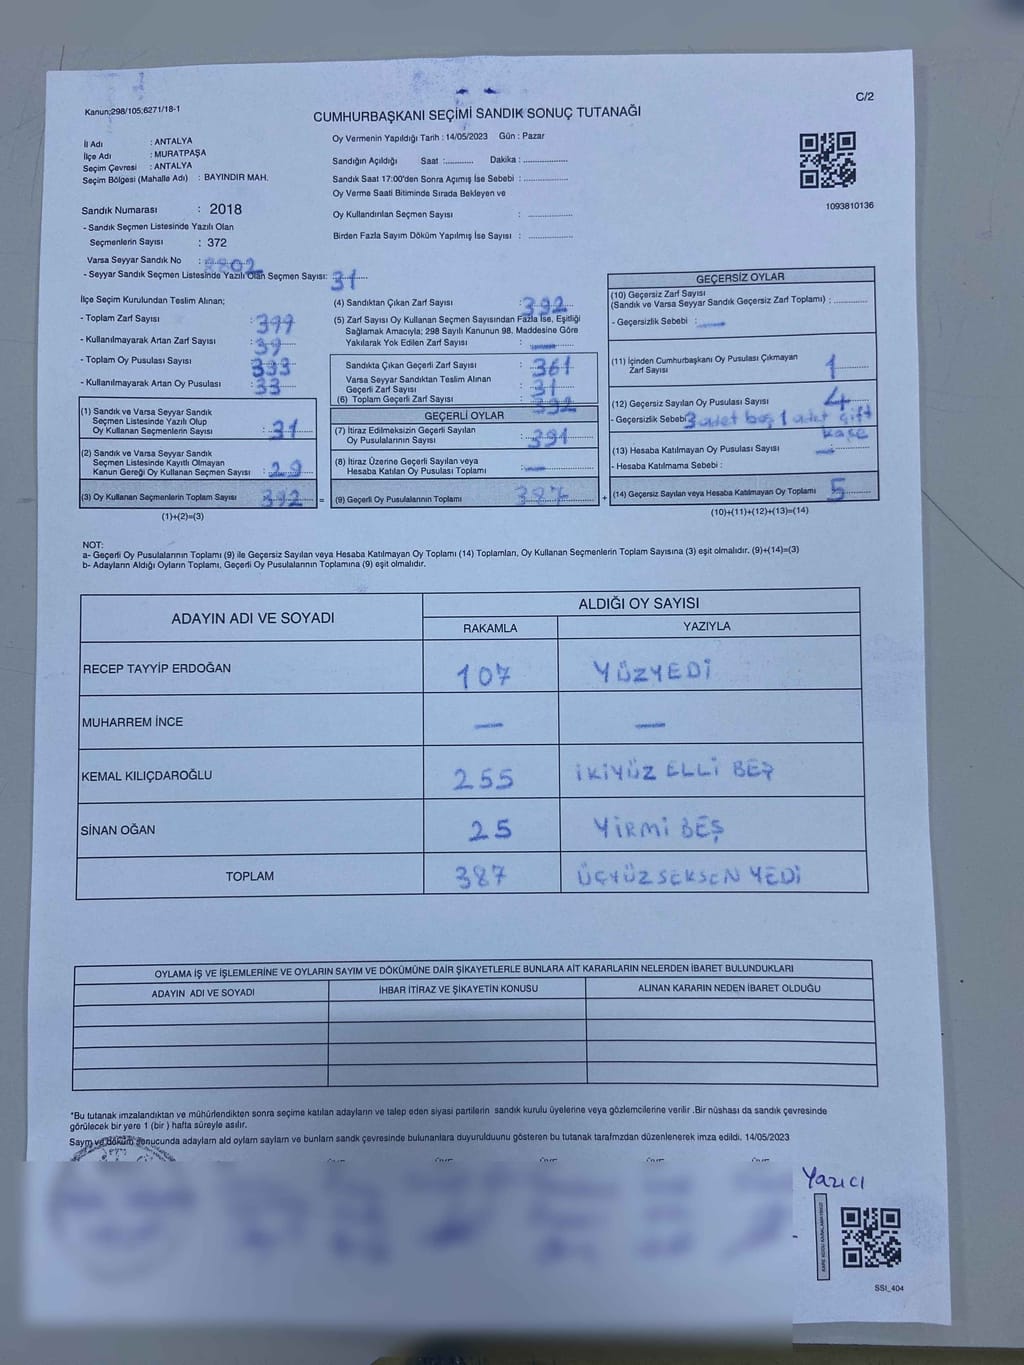 Kanun;298/105;6271/18-1
C/2
CUMHURBAŞKANI SEÇİMİ SANDIK SONUÇ TUTANAĞI
İl Adı : ANTALYA
İlçe Adı : MURATPAŞA
Seçim Çevresi : ANTALYA
Seçim Bölgesi (Mahalle Adı) : BAYINDIR MAH.
Oy Vermenin Yapıldığı Tarih : 14/05/2023 Gün : Pazar
Sandığın Açıldığı Saat :........... Dakika : ................
Sandık Saat 17:00'den Sonra Açımış İse Sebebi : ................
Oy Verme Saati Bitiminde Sırada Bekleyen ve
Oy Kullandırılan Seçmen Sayısı : ................
Birden Fazla Sayım Döküm Yapılmış İse Sayısı : ................
1093810136
Sandık Numarası : 2018
- Sandık Seçmen Listesinde Yazılı Olan
Seçmenlerin Sayısı : 372
Varsa Seyyar Sandık No :
- Seyyar Sandık Seçmen Listesinde Yazılı Olan Seçmen Sayısı: 31
İlçe Seçim Kurulundan Teslim Alınan;
- Toplam Zarf Sayısı : 399
- Kullanılmayarak Artan Zarf Sayısı : 39
- Toplam Oy Pusulası Sayısı : 333
- Kullanılmayarak Artan Oy Pusulası : 33
(1) Sandık ve Varsa Seyyar Sandık
Seçmen Listesinde Yazılı Olup
Oy Kullanan Seçmenlerin Sayısı : 31
(2) Sandık ve Varsa Seyyar Sandık
Seçmen Listesinde Kayıtlı Olmayan
Kanun Gereği Oy Kullanan Seçmen Sayısı : 29
(3) Oy Kullanan Seçmenlerin Toplam Sayısı 392 =
(1)+(2)=(3)
(4) Sandıktan Çıkan Zarf Sayısı : 392
(5) Zarf Sayısı Oy Kullanan Seçmen Sayısından Fazla İse, Eşitliği
Sağlamak Amacıyla; 298 Sayılı Kanunun 98. Maddesine Göre
Yakılarak Yok Edilen Zarf Sayısı : —
Sandıkta Çıkan Geçerli Zarf Sayısı : 361
Varsa Seyyar Sandıktan Teslim Alınan
Geçerli Zarf Sayısı : 31
(6) Toplam Geçerli Zarf Sayısı : 392
GEÇERLİ OYLAR
(7) İtiraz Edilmeksizin Geçerli Sayılan
Oy Pusulalarının Sayısı : 391
(8) İtiraz Üzerine Geçerli Sayılan veya
Hesaba Katılan Oy Pusulası Toplamı : —
(9) Geçerli Oy Pusulalarının Toplamı 387 +
GEÇERSİZ OYLAR
(10) Geçersiz Zarf Sayısı
(Sandık ve Varsa Seyyar Sandık Geçersiz Zarf Toplamı) : ...........
- Geçersizlik Sebebi : —
(11) İçinden Cumhurbaşkanı Oy Pusulası Çıkmayan
Zarf Sayısı 1
(12) Geçersiz Sayılan Oy Pusulası Sayısı 4
- Geçersizlik Sebebi 3 adet boş 1 adet çift
kaşe
(13) Hesaba Katılmayan Oy Pusulası Sayısı —
- Hesaba Katılmama Sebebi :
(14) Geçersiz Sayılan veya Hesaba Katılmayan Oy Toplamı 5
(10)+(11)+(12)+(13)=(14)
NOT:
a- Geçerli Oy Pusulalarının Toplamı (9) ile Geçersiz Sayılan veya Hesaba Katılmayan Oy Toplamı (14) Toplamları, Oy Kullanan Seçmenlerin Toplam Sayısına (3) eşit olmalıdır. (9)+(14)=(3)
b- Adayların Aldığı Oyların Toplamı, Geçerli Oy Pusulalarının Toplamına (9) eşit olmalıdır.
ADAYIN ADI VE SOYADI
ALDIĞI OY SAYISI
RAKAMLA YAZIYLA
RECEP TAYYİP ERDOĞAN 107 YÜZYEDİ
MUHARREM İNCE — —
KEMAL KILIÇDAROĞLU 255 İKİYÜZ ELLİ BEŞ
SİNAN OĞAN 25 YİRMİ BEŞ
TOPLAM 387 ÜÇYÜZ SEKSEN YEDİ
OYLAMA İŞ VE İŞLEMLERİNE VE OYLARIN SAYIM VE DÖKÜMÜNE DAİR ŞİKAYETLERLE BUNLARA AİT KARARLARIN NELERDEN İBARET BULUNDUKLARI
ADAYIN ADI VE SOYADI İHBAR İTİRAZ VE ŞİKAYETİN KONUSU ALINAN KARARIN NEDEN İBARET OLDUĞU
*Bu tutanak imzalandıktan ve mühürlendikten sonra seçime katılan adayların ve talep eden siyasi partilerin sandık kurulu üyelerine veya gözlemcilerine verilir .Bir nüshası da sandık çevresinde
görülecek bir yere 1 (bir ) hafta süreyle asılır.
Sayım ve döküm sonucunda adaylarn ald oylarn saylarn ve bunlarn sandk çevresinde bulunanlara duyurulduunu gösteren bu tutanak tarafmzdan düzenlenerek imza edildi. 14/05/2023
Yazıcı
SSI_404